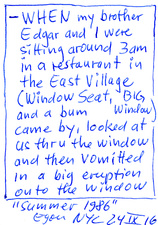 - WHEN my brother
Edgar and I were
sitting around 3am
in a restaurant in
the East Village
(Window Seat, BIG
and a bum Window)
came by, looked at
us thru the window
and then vomitted
in a big eruption
onto the window
"Summer 1986"
Egon NYC 24 IX 16